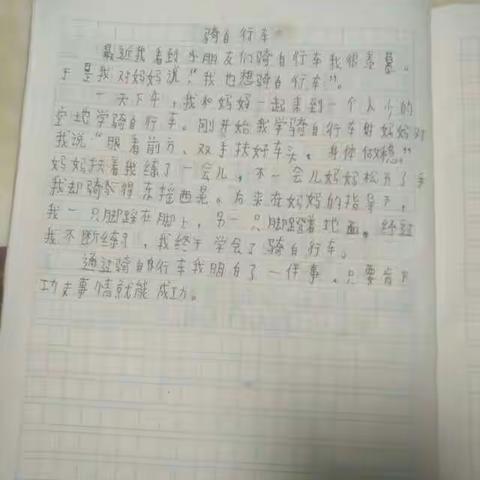 骑自行车
最近我看到小朋友们骑自行车我很羡慕。
于是我对妈妈说"我也想骑自行车"。
一天下午,我和妈妈一起来到一个人少的
空地学骑自行车。刚开始我学骑自行车时妈妈对
我说"眼看前方、双手扶好车头。身体做稳"
妈妈扶着我练了一会儿,不一会儿妈妈松开了手
我却骑得东摇西晃。后来在妈妈的指导下,
我一只脚踩在脚上,另一只脚蹬着地面。经过
我不断练习,我终于学会了骑自行车。
通过骑自行车我明白了一件事,只要肯下
功夫事情就能成功。